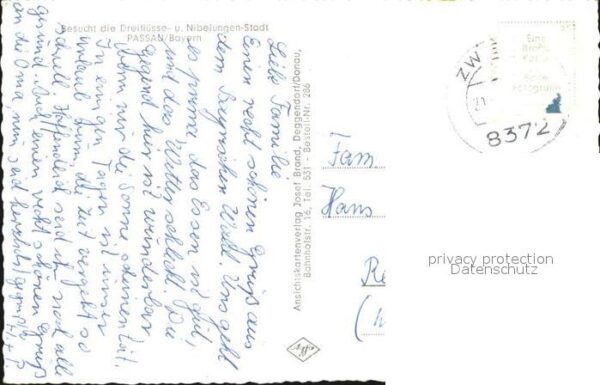 Besucht die Dreiflüsse- u. Nibelungen-Stadt
PASSAU/Bayern
Liebe Familie
Einen recht schönen Gruß aus
dem Bayrischen Wald. Uns geht
es prima, das Essen ist
und das Wetter schlecht. Die
Gegend hier ist wunderbar
wenn nur die Sonne scheinen tät.
In ein Tagen ist unser
Urlaub rum, die Zeit vergeht so
schnell. Hoffentlich seid ihr noch alle
gesund. Auch einen recht schönen Gruß
an die Oma, nun seid herzlich gegrüßt
Ansichtskartenverlag Josef Brand, Deggendorf/Donau,
Bahnhofstr. 16, Tel. 531 - Bestell-Nr. 286
Fam
Hans
ZW
8372
privacy protection
Datenschutz